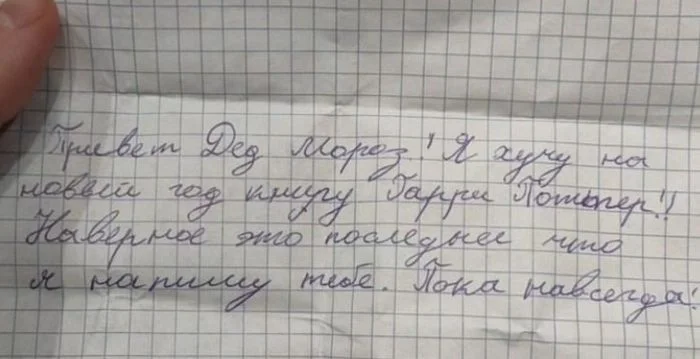 Привет Дед Мороз! Я хучу на
новый год книгу Гарри Поттер!!
Наверное это последнее что
я напишу тебе. Пока навсегда!